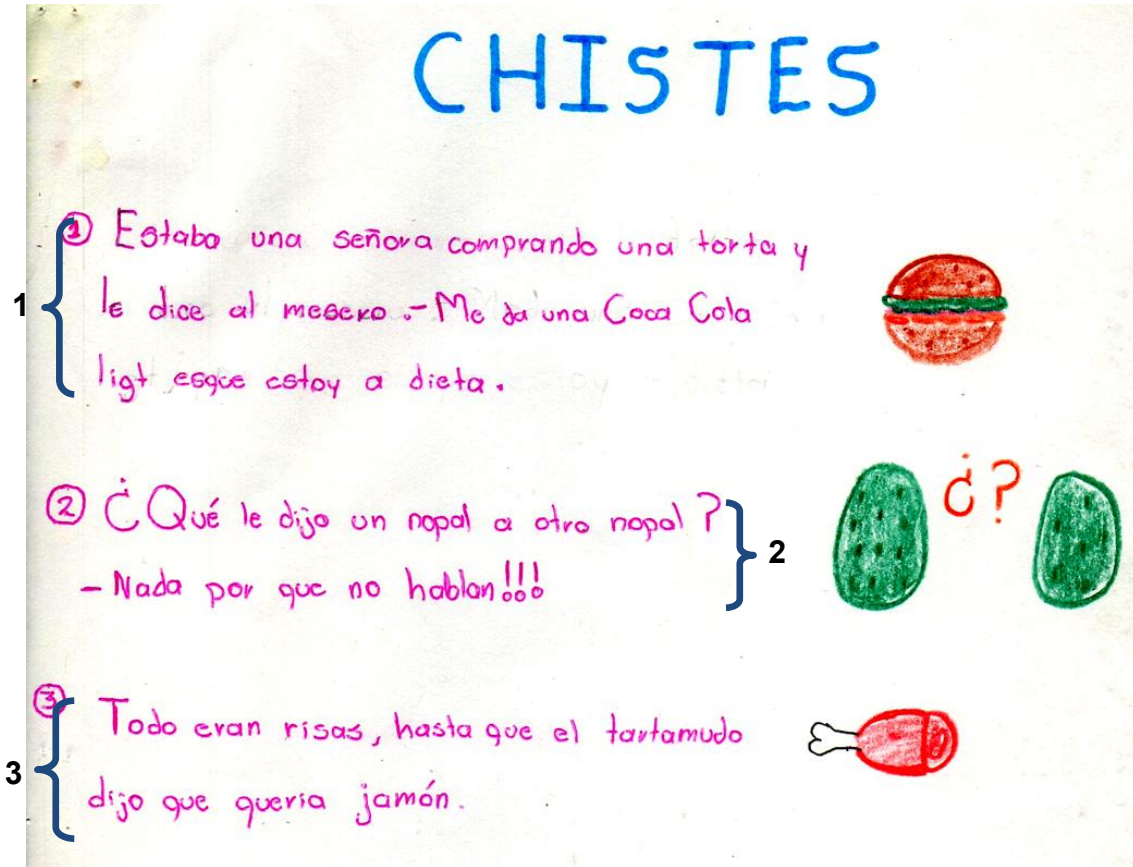 CHISTES
1 Estaba una señora comprando una torta y
1 le dice al mesero.-Me da una Coca Cola
ligt esque estoy a dieta.
¿?
2 ¿Qué le dijo un nopal a otro nopal?
-Nada por que no hablan!!!
2
3 Todo eran risas, hasta que el tartamudo
3 dijo que queria jamón.